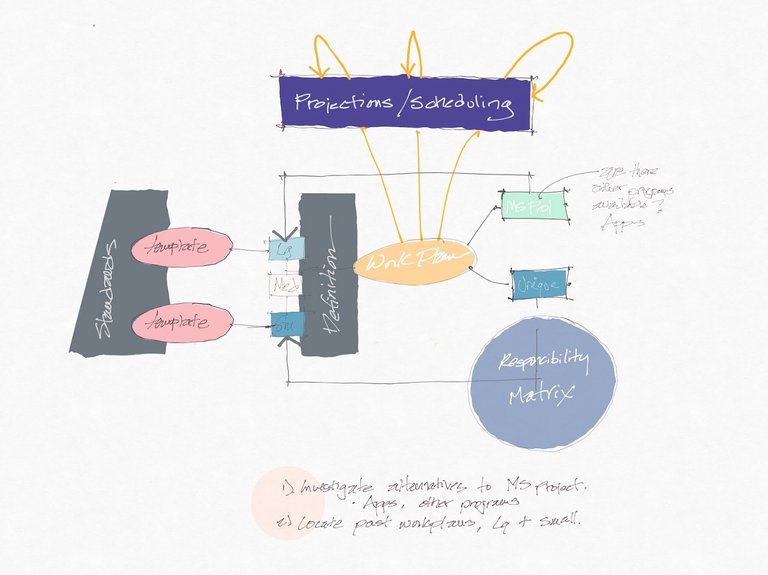 Projections/Scheduling
are there
other programs
available?
Apps
MS Proj
Standards
template
Lg
Definition
Work Plan
Med
Unique
template
Sm
Responcibility
Matrix
1). Investigate alternatives to MS project.
• Apps, other programs
2). Locate past workplans, Lg + small.